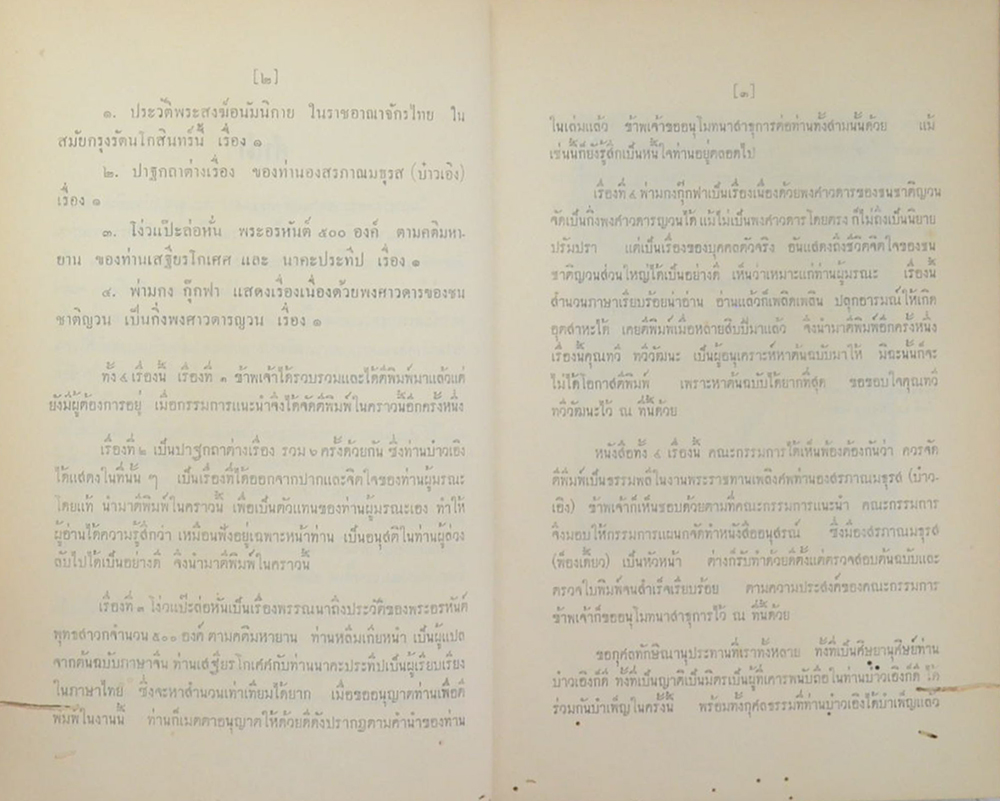 [๒]
๑. ประวัติพระสงฆ์อนัมนิกาย ในราชอาณาจักรไทย ใน
สมัยกรุงรัตนโกสินทร์นี้ เรื่อง ๑
๒. ปาฐกถาต่างเรื่อง ของท่านองสรภาณมธุรส (บ๋าวเอิง)
เรื่อง ๑
๓. โง่วแป๊ะล่อหั่น พระอรหันต์ ๕๐๐ องค์ ตามคติมหา-
ยาน ของท่านเสฐียรโกเศศ และ นาคะประทีป เรื่อง ๑
๔. พ่ามกง กุ๊กฟา แสดงเรื่องเนื่องด้วยพงศาวดารของชน
ชาติญวน เป็นกิ่งพงศาวดารญวน เรื่อง ๑
ทั้ง ๔ เรื่องนี้ เรื่องที่ ๑ ข้าพเจ้าได้รวบรวมและได้ตีพิมพ์มาแล้วแต่
ยังมีผู้ต้องการอยู่ เมื่อกรรมการแนะนำจึงได้จัดตีพิมพ์ในคราวนี้อีกครั้งหนึ่ง
เรื่องที่ ๒ เป็นปาฐกถาต่างเรื่อง รวม ๖ ครั้งด้วยกัน ซึ่งท่านบ๋าวเอิง
ได้แสดงในที่นั้น ๆ เป็นเรื่องที่ได้ออกจากปากและจิตใจของท่านผู้มรณะ
โดยแท้ นำมาตีพิมพ์ในคราวนี้ เพื่อเป็นตัวแทนของท่านผู้มรณะเอง ทำให้
ผู้อ่านได้ความรู้สึกว่า เหมือนฟังอยู่เฉพาะหน้าท่าน เป็นอนุสติในท่านผู้ล่วง
ลับไปได้เป็นอย่างดี จึงนำมาตีพิมพ์ในคราวนี้
เรื่องที่ ๓ โง่วแป๊ะล่อหั่นเป็นเรื่องพรรณนาถึงประวัติของพระอรหันต์
พุทธสาวกจำนวน ๕๐๐ องค์ ตามคติมหายาน ท่านหลิมเกียหนำ เป็นผู้แปล
จากต้นฉบับภาษาจีน ท่านเสฐียรโกเศศกับท่านนาคะประทีปเป็นผู้เรียบเรียง
ในภาษาไทย ซึ่งจะหาสำนวนเท่าเทียมได้ยาก เมื่อขออนุญาตท่านเพื่อตี
พิมพ์ในงานนี้ ท่านก็เมตตาอนุญาตให้ด้วยดีดังปรากฏตามคำนำของท่าน
[๓]
ในเล่มแล้ว ข้าพเจ้าขออนุโมทนาสาธุการต่อท่านทั้งสามนั้นด้วย แม้
เช่นนั้นก็ยังรู้สึกเป็นหนี้ใจท่านอยู่ตลอดไป
เรื่องที่ ๔ พ่ามกงกุ๊กฟาเป็นเรื่องเนื่องด้วยพงศาวดารของชนชาติญวน
จัดเป็นกิ่งพงศาวดารญวนได้ แม้ไม่เป็นพงศาวดารโดยตรง ก็ไม่ถึงเป็นนิยาย
ปรัมปรา แต่เป็นเรื่องของบุคคลตัวจริง อันแสดงถึงชีวิตจิตใจของชน
ชาติญวนส่วนใหญ่ได้เป็นอย่างดี เห็นว่าเหมาะแก่ท่านผู้มรณะ เรื่องนี้
สำนวนภาษาเรียบร้อยน่าอ่าน อ่านแล้วก็เพลิดเพลิน ปลุกอารมณ์ให้เกิด
อุตสาหะได้ เคยตีพิมพ์เมื่อหลายสิบปีมาแล้ว จึงนำมาตีพิมพ์อีกครั้งหนึ่ง
เรื่องนี้คุณทวี ทวีวัฒนะ เป็นผู้อนุเคราะห์หาต้นฉบับมาให้ มิฉะนั้นก็จะ
ไม่ได้โอกาสตีพิมพ์ เพราะหาต้นฉบับได้ยากที่สุด ขอขอบใจคุณทวี
ทวีวัฒนะไว้ ณ ที่นี้ด้วย
หนังสือทั้ง ๔ เรื่องนี้ คณะกรรมการได้เห็นพ้องต้องกันว่า ควรจัด
ตีพิมพ์เป็นธรรมพลีในงานพระราชทานเพลิงศพท่านองสรภาณมธุรส (บ๋าว-
เอิง) ข้าพเจ้าก็เห็นชอบด้วยตามที่คณะกรรมการแนะนำ คณะกรรมการ
จึงมอบให้กรรมการแผนกจัดทำหนังสืออนุสรณ์ ซึ่งมีองสรภาณมธุรส
(พ็องเดี๋ยว) เป็นหัวหน้า ต่างก็รับทำด้วยดีตั้งแต่ตรวจสอบต้นฉบับและ
ตรวจใบพิมพ์จนสำเร็จเรียบร้อย ตามความประสงค์ของคณะกรรมการ
ข้าพเจ้าก็ขออนุโมทนาสาธุการไว้ ณ ที่นี้ด้วย
ขอกุศลทักษิณานุประทานที่เราทั้งหลาย ทั้งที่เป็นศิษยานุศิษย์ท่าน
บ๋าวเอิงก็ดี ทั้งที่เป็นญาติเป็นมิตรเป็นผู้ที่เคารพนับถือในท่านบ๋าวเอิงก็ดี ได้
ร่วมกันบำเพ็ญในครั้งนี้ พร้อมทั้งกุศลธรรมที่ท่านบ๋าวเอิงได้บำเพ็ญแล้ว